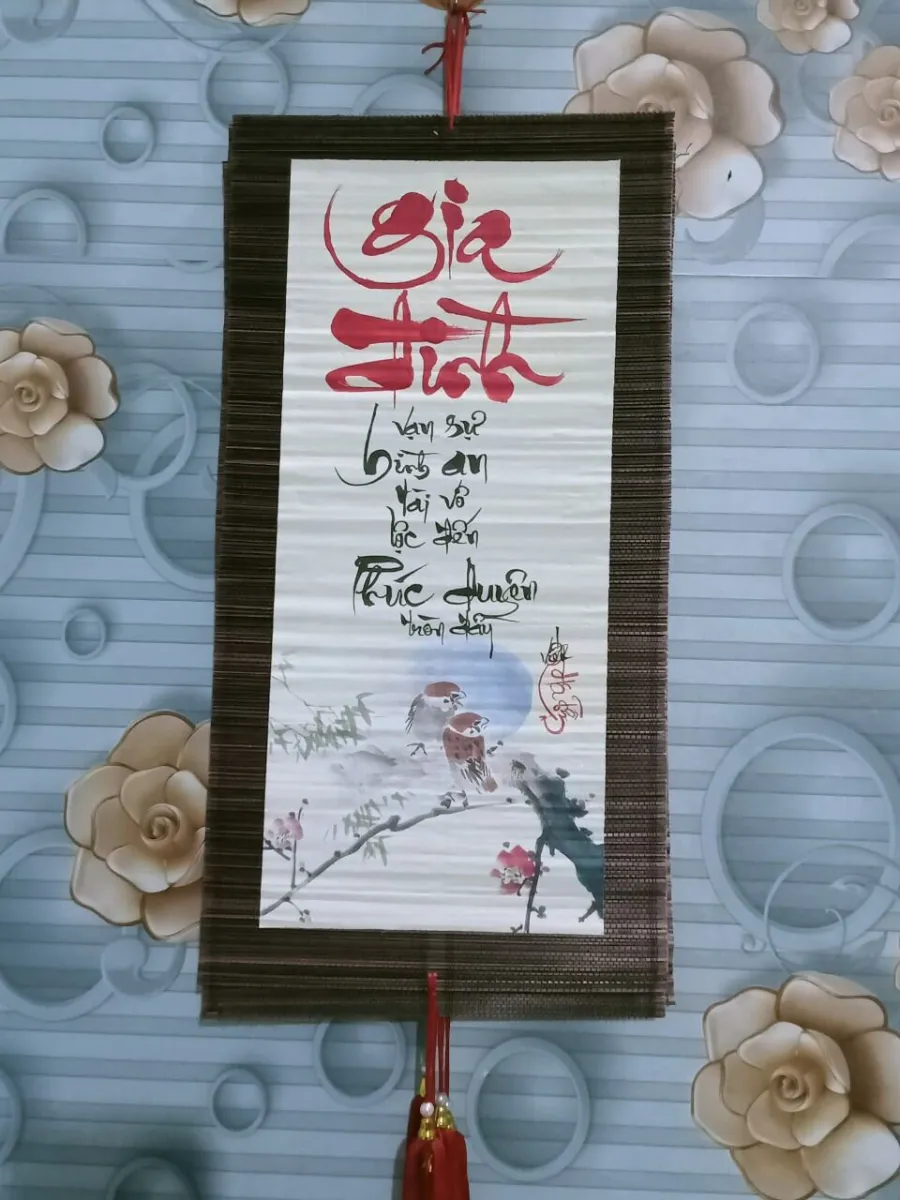 Gia
đình
vạn sự
bình an
tài vô
lộc đến
Phúc duyên
tròn đầy